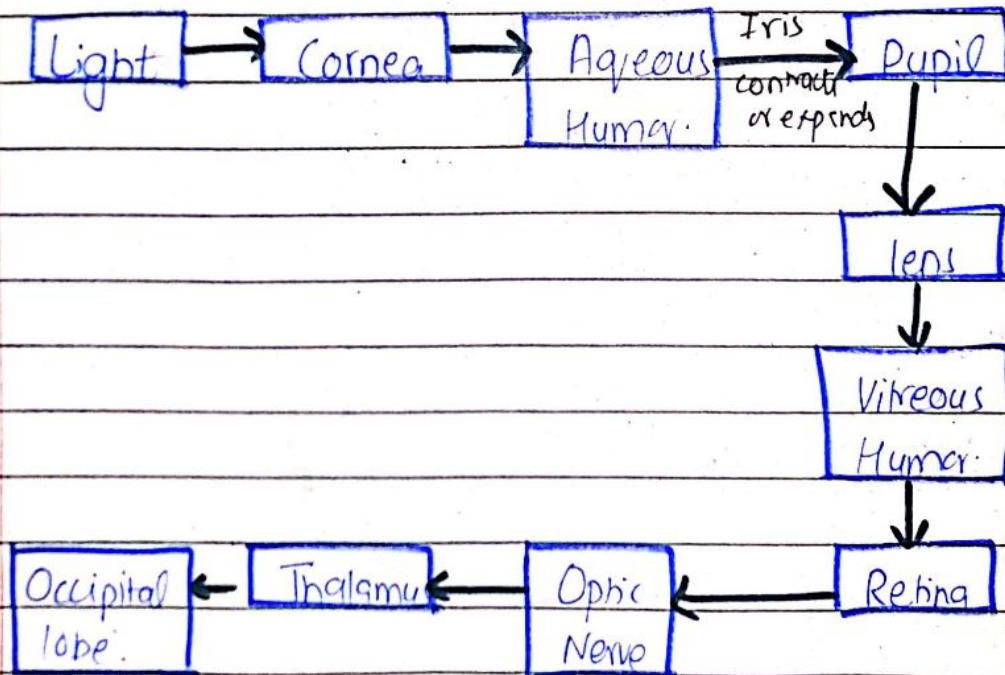 Light
Cornea
Aqeous
Humor.
Iris
contracts
or expands
Pupil
lens
Vitreous
Humor.
Retina
Optic
Nerve
Thalamus
Occipital
lobe.